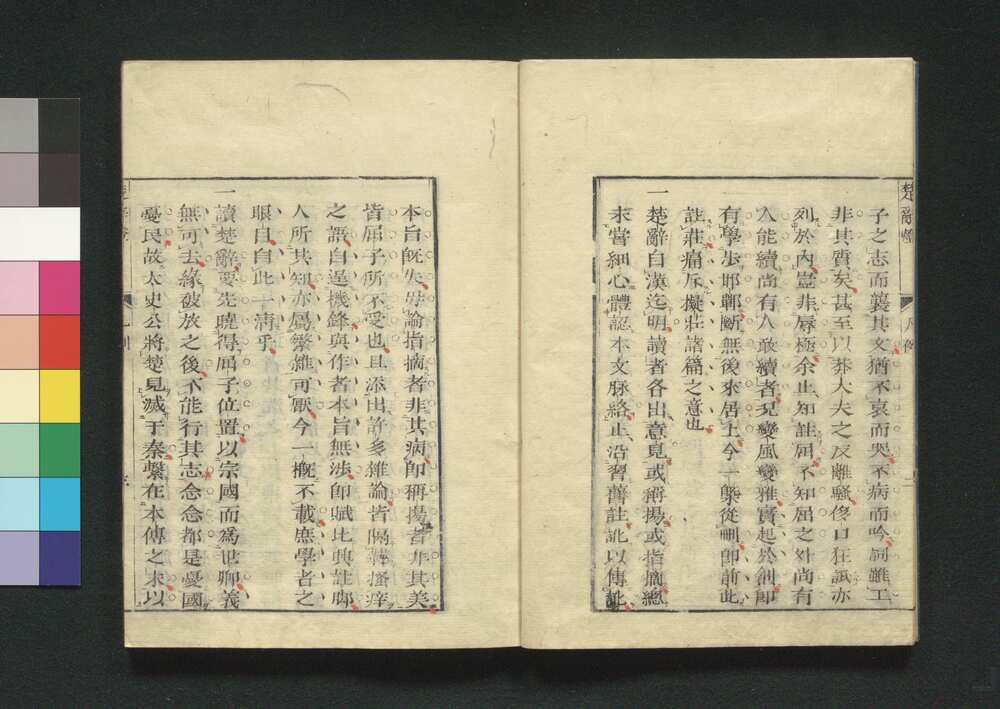 子之志而襲其文猶不哀而哭不病而吟詞雖工
非其質矣甚至以莽大夫之反離騷侈口狂詆亦
列於內豈非辱極余止知註屈不知屈之外尚有
人能續尚有人敢續者况變風變雅實起於創即
有學步邯鄲斷無後來居上今一槩從刪即前此
註莊痛斥擬莊諸篇之意也
一楚辭自漢迄明讀者各出意見或稱揚或指摘總
未嘗細心體認本文脉絡止沿習舊註訛以傳訛
本旨旣失毋論指摘者非其病即稱揚者非其美
皆屈子所不受也且添出許多雜論皆隔靴搔痒
之語自逞機鋒與作者本旨無涉即賦比興註脚
人所共知亦屬繁雜可厭今一槪不載庶學者之
眼目自此一清乎
一讀楚辭要先曉得屈子位置以宗國而爲世卿義
無可去緣被放之後不能行其志念念都是憂國
憂民故太史公將楚見滅于秦繫在本傳之末以